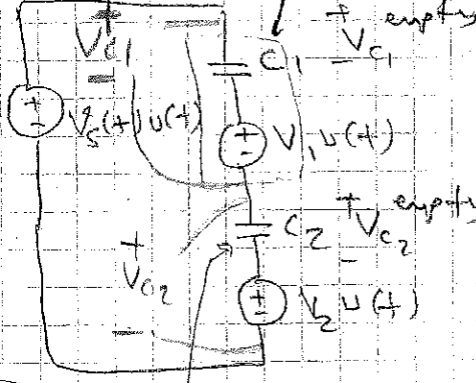 + empty
Vc1 C1 Vc1
- -
+
- Vs(t)u(t) + V1u(t)
-
+ empty
+ C2 Vc2
Vc2 -
+ V2u(t)
- -